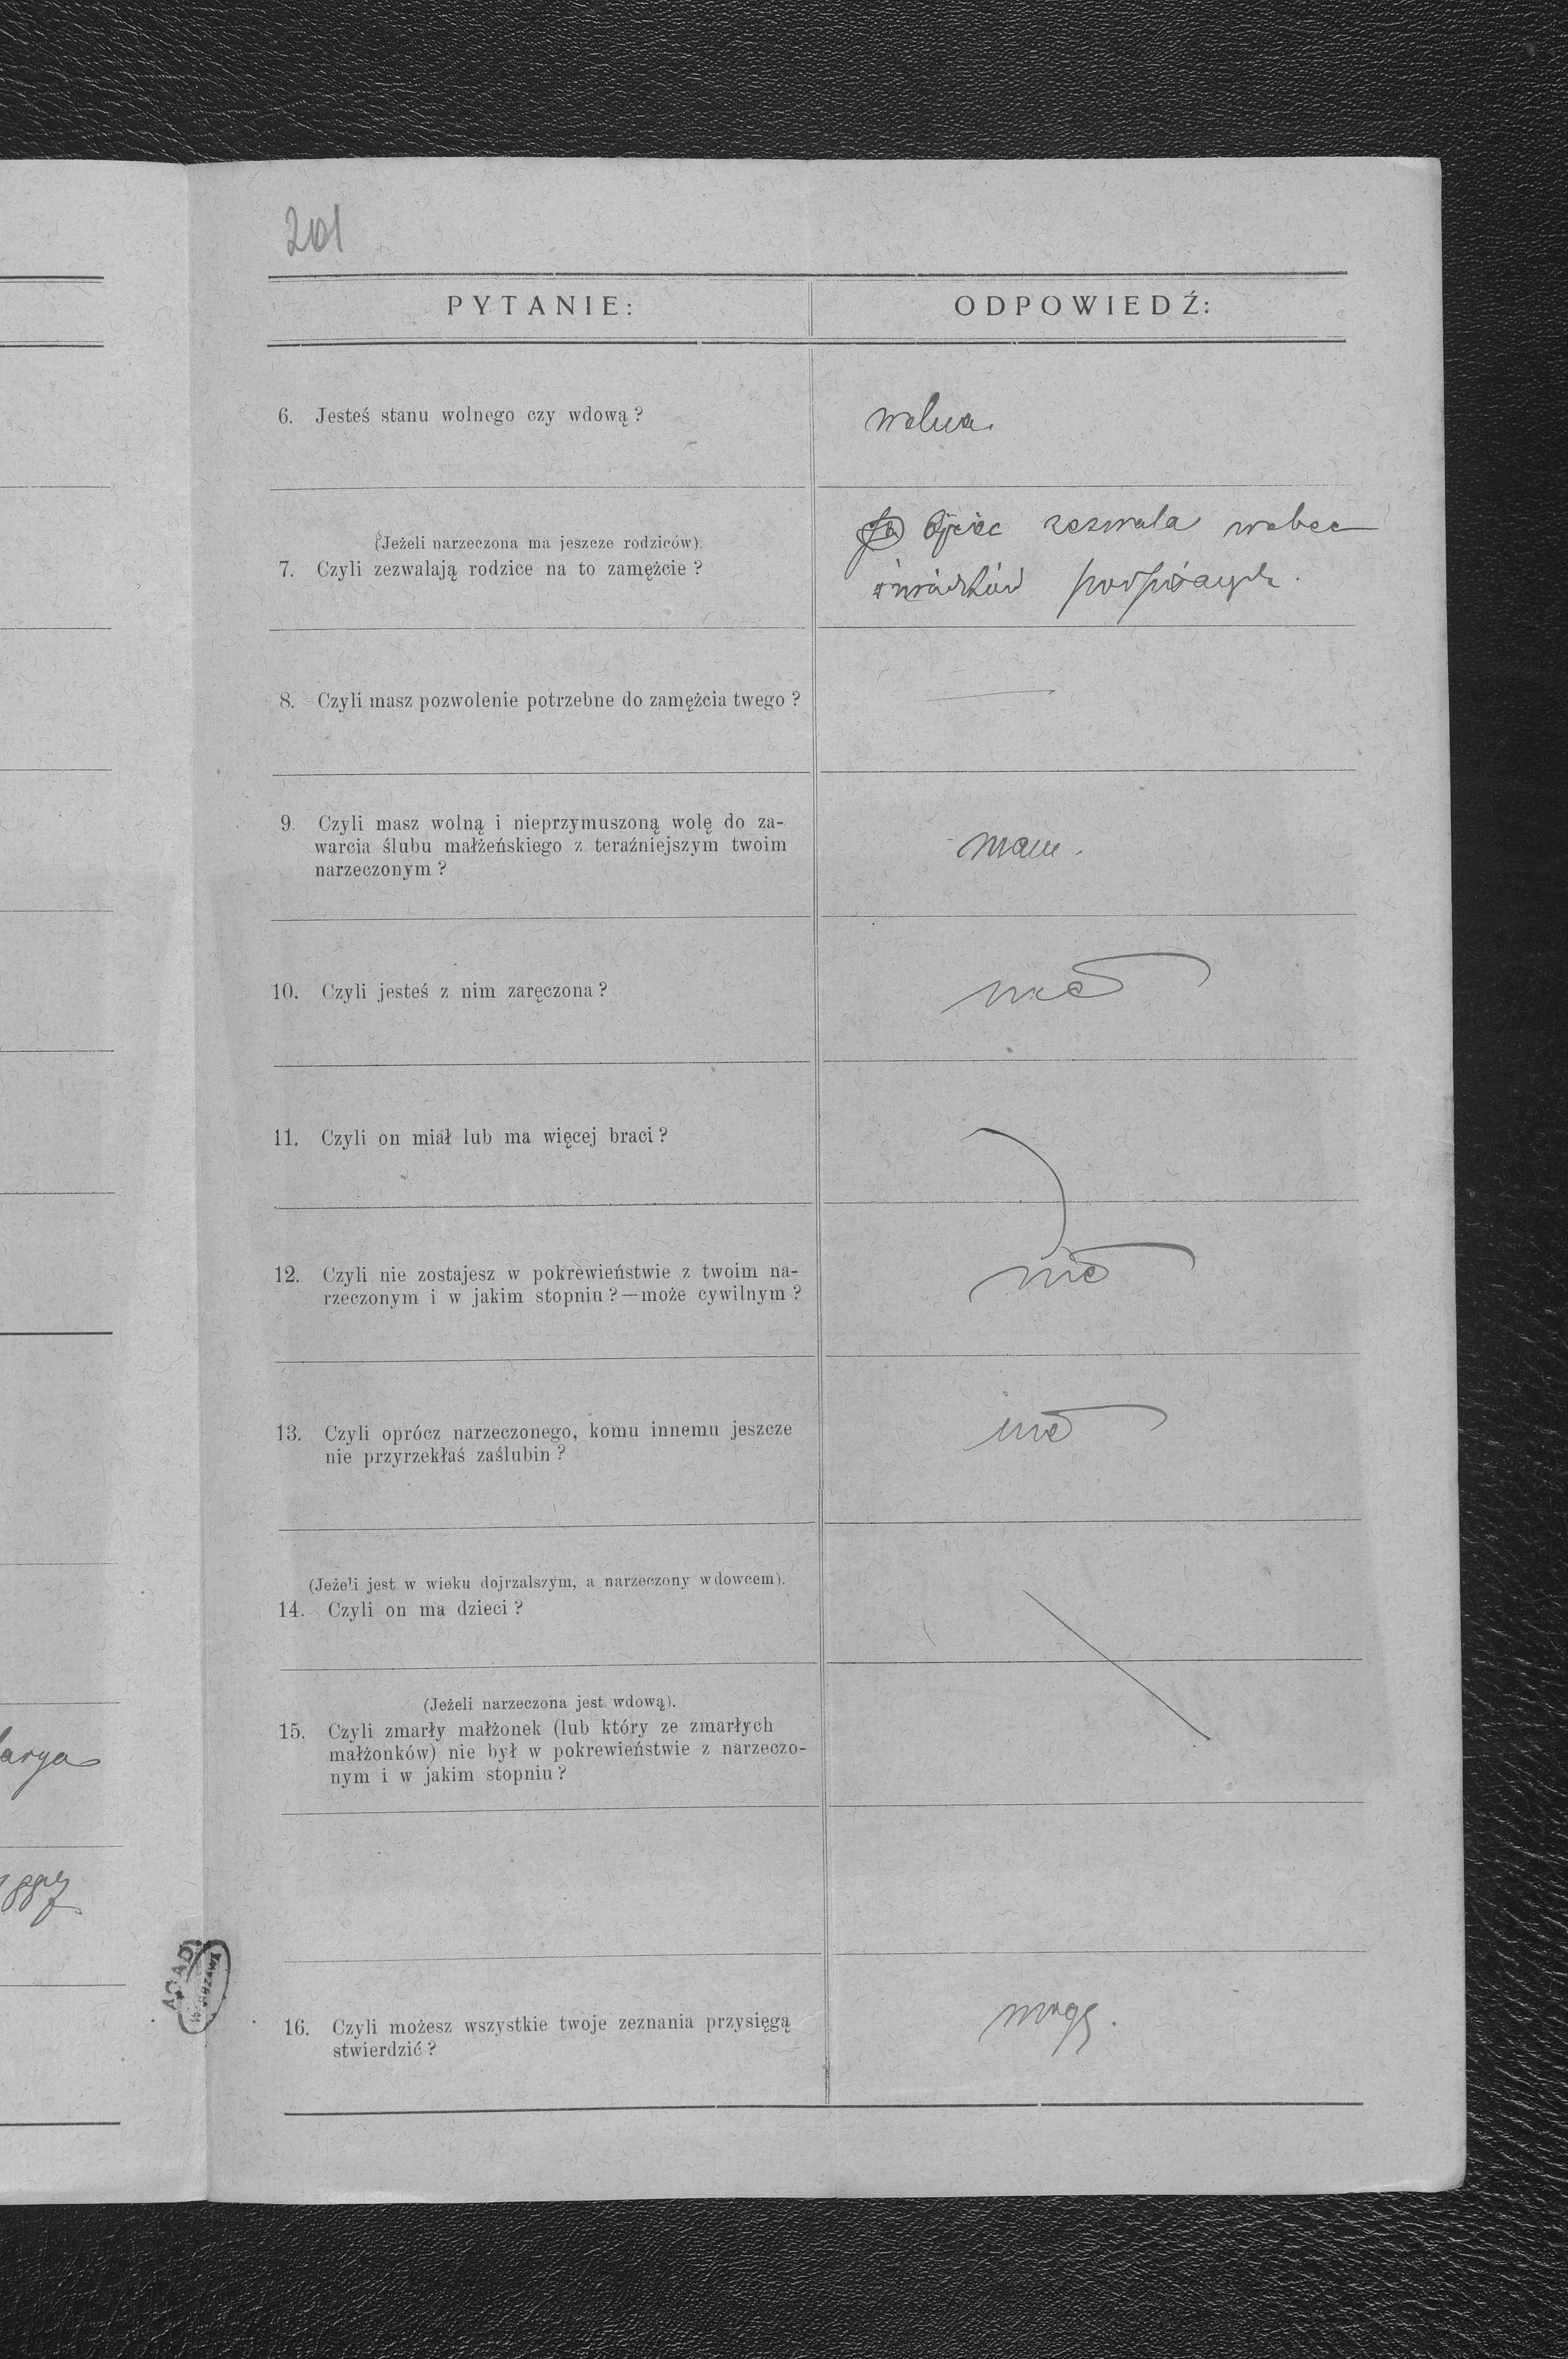 201
PYTANIE:
ODPOWIEDŹ:
6. Jesteś stanu wolnego czy wdową?
wolna.
(Jeżeli narzeczona ma jeszcze rodziców).
7. Czyli zezwalają rodzice na to zamężcie?
Ojciec zezwala wobec
świadków podpisanych.
8. Czyli masz pozwolenie potrzebne do zamężcia twego?
—
9. Czyli masz wolną i nieprzymuszoną wolę do za-
warcia ślubu małżeńskiego z teraźniejszym twoim
narzeczonym?
mam.
10. Czyli jesteś z nim zaręczona?
nie
11. Czyli on miał lub ma więcej braci?
12. Czyli nie zostajesz w pokrewieństwie z twoim na-
rzeczonym i w jakim stopniu?—może cywilnym?
nie
13. Czyli oprócz narzeczonego, komu innemu jeszcze
nie przyrzekłaś zaślubin?
nie
(Jeżeli jest w wieku dojrzalszym, a narzeczony wdowcem).
14. Czyli on ma dzieci?
(Jeżeli narzeczona jest wdową).
15. Czyli zmarły małżonek (lub który ze zmarłych
małżonków) nie był w pokrewieństwie z narzeczo-
nym i w jakim stopniu?
AGAD
WARSZAWA
16. Czyli możesz wszystkie twoje zeznania przysięgą
stwierdzić?
mogę.